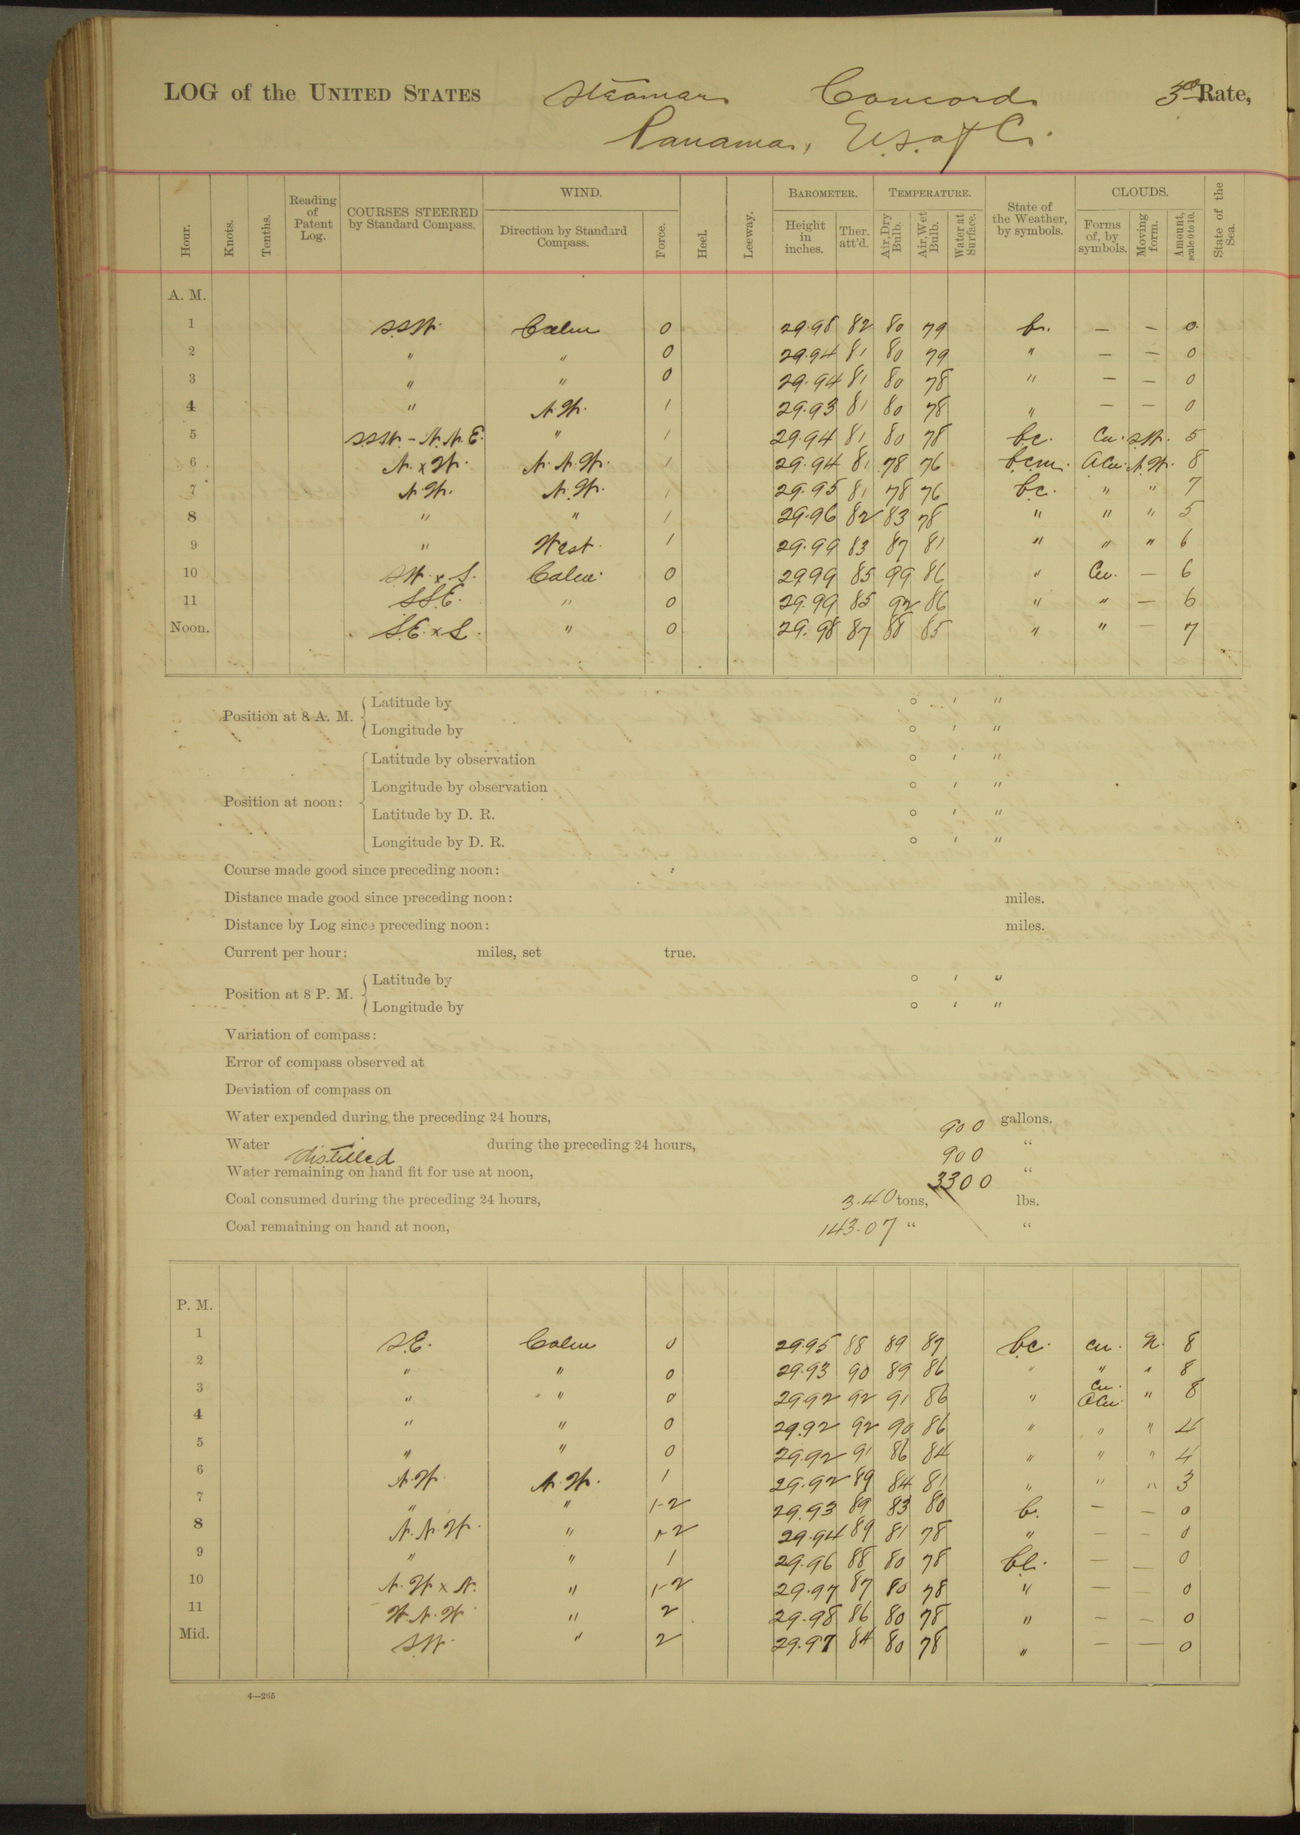 LOG of the UNITED STATES Steamer Concord 3d Rate,
Panama, U.S. of C.
Hour. Knots. Tenths. Reading of Patent Log. COURSES STEERED by Standard Compass. WIND. Direction by Standard Compass. Force. Heel. Leeway. BAROMETER. Height in inches. Ther. att'd. TEMPERATURE. Air, Dry Bulb. Air, Wet Bulb. Water at Surface. State of the Weather, by symbols. CLOUDS. Forms of, by symbols. Moving form. Amount, scale 0 to 10. State of the Sea.
A. M.
1 S.S.W. Calm 0 29.98 82 80 79 b. — — 0
2 " " 0 29.94 81 80 79 " — — 0
3 " " 0 29.94 81 80 78 " — — 0
4 " N.W. 1 29.93 81 80 78 " — — 0
5 S.S.W. - N.N.E. " 1 29.94 81 80 78 b.c. Cu. S.W. 5
6 N. x W. N.N.W. 1 29.94 81 78 76 b.c.m. A.Cu. N.W. 8
7 N.W. N.W. 1 29.95 81 78 76 b.c. " " 7
8 " " 1 29.96 82 83 78 " " " 5
9 " West. 1 29.99 83 87 81 " " " 6
10 S.W. x S. Calm 0 29 99 85 99 86 " Cu. — 6
11 S.S.E. " 0 29.99 85 92 86 " " — 6
Noon. S.E. x S. " 0 29.98 87 88 85 " " — 7
Position at 8 A. M. { Latitude by ° ' "
Longitude by ° ' "
Position at noon: { Latitude by observation ° ' "
Longitude by observation ° ' "
Latitude by D. R. ° ' "
Longitude by D. R. ° ' "
Course made good since preceding noon:
Distance made good since preceding noon: miles.
Distance by Log since preceding noon: miles.
Current per hour: miles, set true.
Position at 8 P. M. { Latitude by ° ' "
Longitude by ° ' "
Variation of compass:
Error of compass observed at
Deviation of compass on
Water expended during the preceding 24 hours, 900 gallons.
Water distilled during the preceding 24 hours, 900 "
Water remaining on hand fit for use at noon, 3300 "
Coal consumed during the preceding 24 hours, 3.40 tons, lbs.
Coal remaining on hand at noon, 143.07 " "
P. M.
1 S.E. Calm 0 29.95 88 89 87 b.c. Cu. N. 8
2 " " 0 29.93 90 89 86 " " " 8
3 " " 0 29.92 92 91 86 " Cu. A.Cu. " 8
4 " " 0 29.92 92 90 86 " " " 4
5 " " 0 29.92 91 86 84 " " " 4
6 N.W. N.W. 1 29.92 89 84 81 " " " 3
7 " " 1-2 29.93 89 83 80 b. — — 0
8 N.N.W. " 1-2 29.94 89 81 78 " — — 0
9 " " 1 29.96 88 80 78 b.l. — — 0
10 N.W x N. " 1-2 29.97 87 80 78 " — — 0
11 W.N.W. " 2 29.98 86 80 78 " — — 0
Mid. S.W. " 2 29.97 84 80 78 " — — 0
4—265